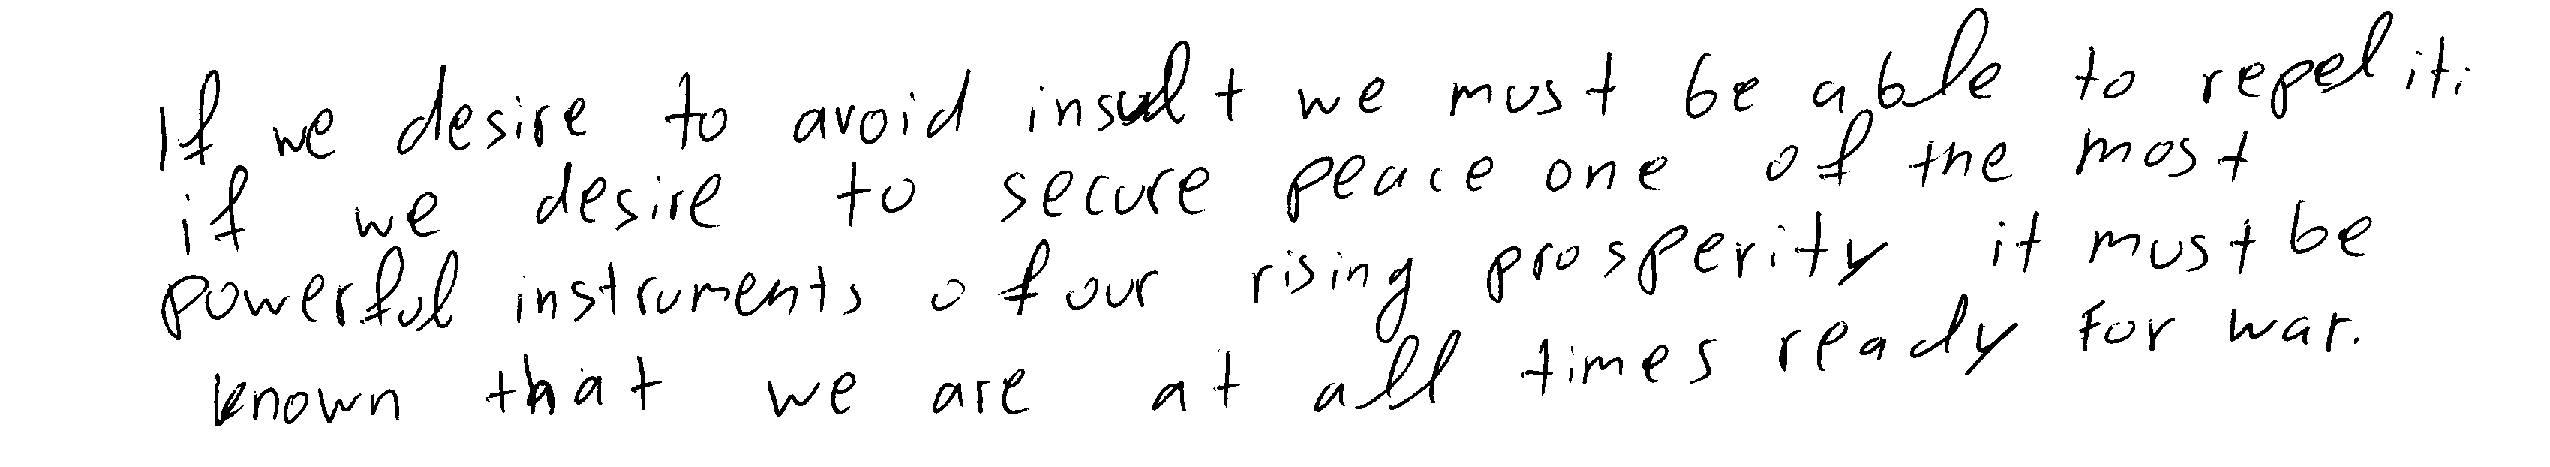 If we desire to avoid insult we must be able to repel it;
if we desire to secure peace one of the most
powerful instruments of our rising prosperity it must be
known that we are at all times ready for war.